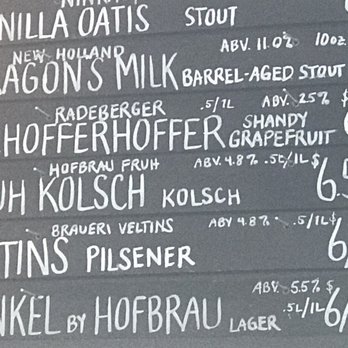 NILLA OATIS STOUT
NEW HOLLAND ABV. 11.0% 10oz.
AGON'S MILK BARREL-AGED STOUT
RADEBERGER .5/1L ABV. 25% $
HOFFERHOFFER SHANDY GRAPEFRUIT
HOFBRAU FRUH ABV. 4.8% .5L/1L $
UH KOLSCH KOLSCH 6.5
BRAUERI VELTINS ABV 4.8% .5/1L $
TINS PILSENER 6
ABV. 5.5% $
NKEL BY HOFBRAU LAGER .5L/1L 6/